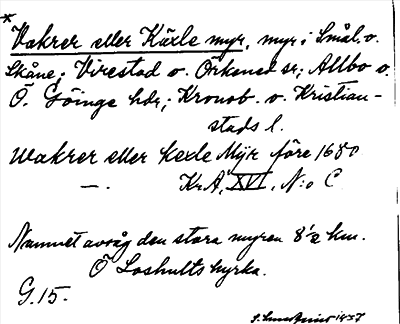 *
Vakrer eller Käxle myr, myr i Smål. o.
Skåne; Virestad o. Örkened sr; Allbo o.
Ö. Göinge hdr; Kronob. o. Kristian-
stads l.
Wakrer eller kexle Myr före 1680
—. Kr.A, XVI, N:o C
Namnet avsåg den stora myren 8 1/2 km.
Ö Loshults kyrka.
G. 15.
1937